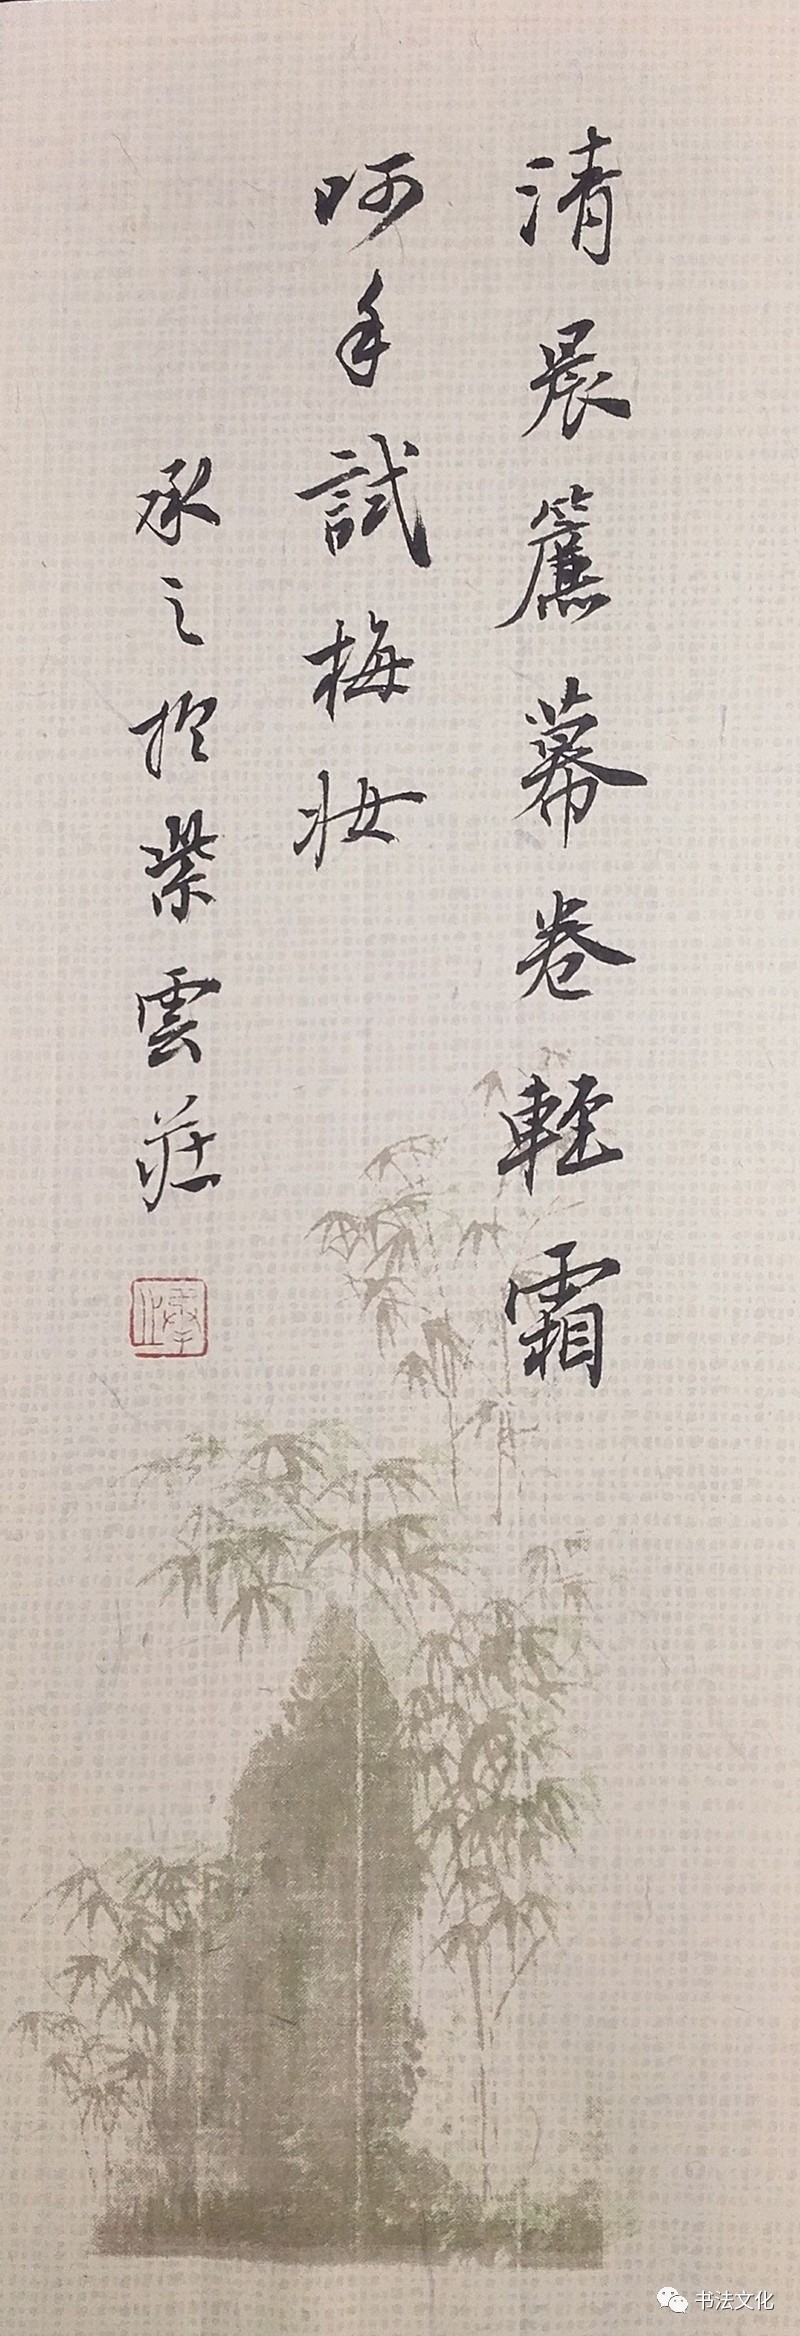 清晨簾幕卷輕霜
呵手試梅妝
承之於紫雲莊
书法文化